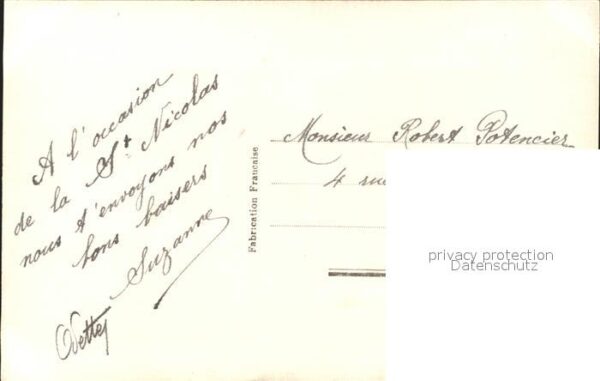 A l'occasion
de la St Nicolas
nous t'envoyons nos
bons baisers
Suzanne
Odette
Fabrication Française
Monsieur Robert Potencier
4 rue
privacy protection
Datenschutz